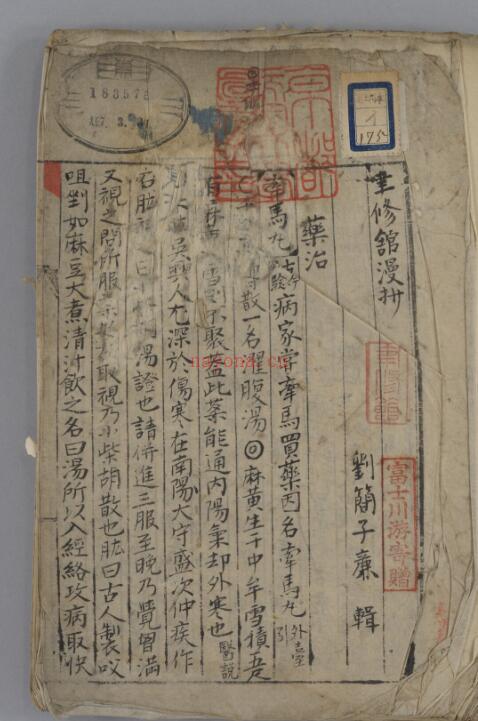 聿修舘漫抄
劉簡子廉 輯
藥治
牽馬丸 病家嘗牽馬買藥因名牽馬丸 外臺引
散一名濯腹湯◎麻黄生于中牟雪積五
有麻黄 雪 不聚盖此藥能通内陽氣却外寒也 醫說
吳興人尤深於傷寒在南陽大守盛次仲疾作
召肱視之曰小柴胡湯證也請併進三服至晚乃覺胷滿
又視之問所服 取視乃小柴胡散也肱曰古人製㕮
咀剉如麻豆大煮清汁飲之名曰湯所以入經絡攻病取快
富士川游寄贈
183572
175
nayona.cn